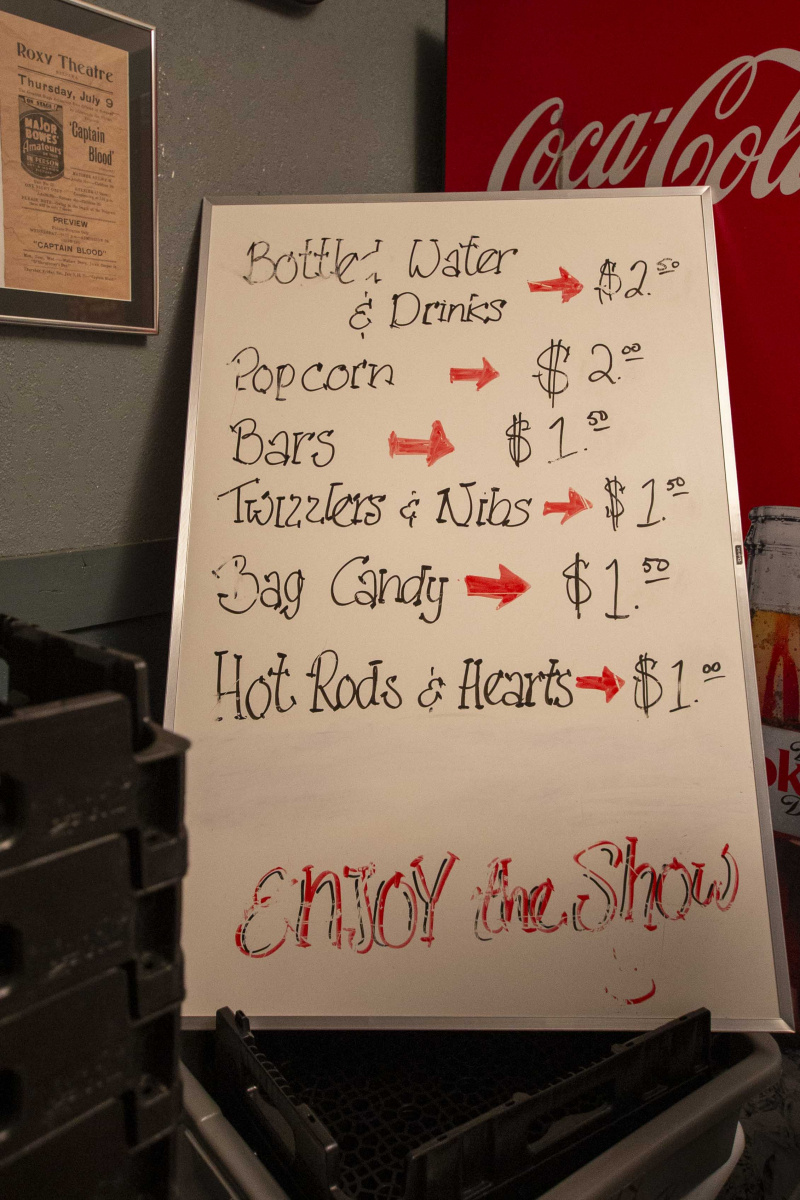 Roxy Theatre
Thursday, July 9
MAJOR
BOWES'
Amateurs
IN PERSON
"Captain
Blood"
PREVIEW
"CAPTAIN BLOOD"
Coca-Cola
Bottle' Water
& Drinks $2.50
Popcorn $2.00
Bars $1.50
Twizzlers & Nibs $1.50
Bag Candy $1.50
Hot Rods & Hearts $1.00
ENJOY the Show
ok